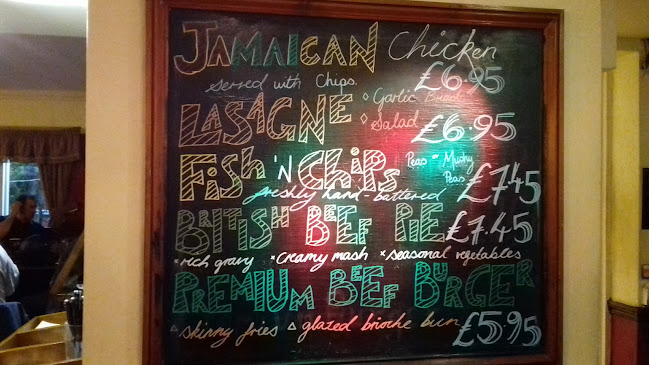 JAMAICAN Chicken
served with Chips. £6.95
LASAGNE ◊ Garlic Bread
◊ Salad £6.95
FiSh 'N ChiPs Peas - Mushy Peas
freshly hand-battered £7.45
BRITISH BEEF PIE £7.45
*rich gravy *creamy mash *seasonal vegetables
PREMIUM BEEF BURGER
△ skinny fries △ glazed brioche bun £5.95